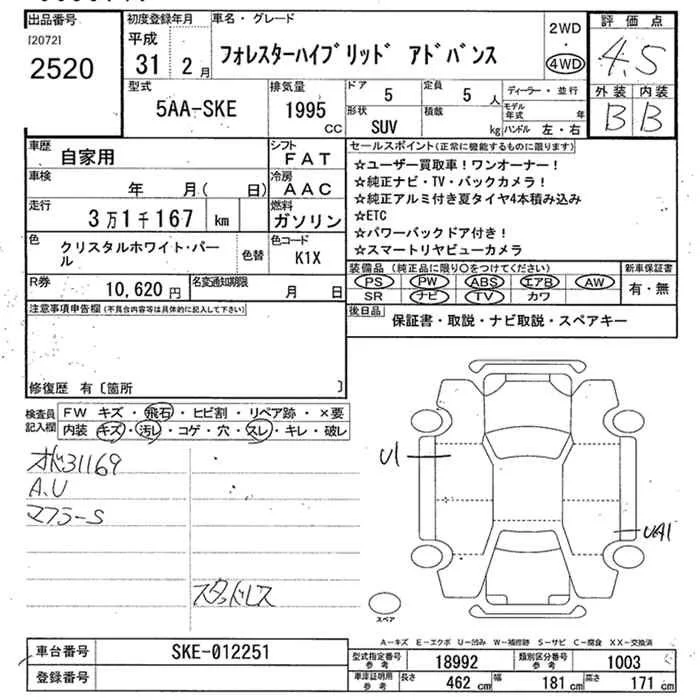 出品番号
I20721
2520
初度登録年月
平成
31 2月
車名・グレード
フォレスターハイブリッド アドバンス
2WD
・
4WD
評価点
4.5
外装 内装
B B
型式
5AA-SKE
排気量
1995
CC
ドア
5
定員
5 人
形状
SUV
積載
kg
ディーラー・並行
モデル年式 年
ハンドル 左・右
車歴
自家用
シフト
FAT
車検
年 月( 日)
冷房
AAC
走行
3万1千167 km
燃料
ガソリン
色
クリスタルホワイト・パール
色替
色コード
K1X
R券
10,620 円
名変通知期限
月 日
セールスポイント(正常に機能するものに限ります)
☆ユーザー買取車!ワンオーナー!
☆純正ナビ・TV・バックカメラ!
☆純正アルミ付き夏タイヤ4本積み込み
☆ETC
☆パワーバックドア付き!
☆スマートリヤビューカメラ
装備品(純正品に限り○をつけてください)
PS PW ABS エアB AW
SR ナビ TV カワ
新車保証書
有・無
後日品
保証書・取説・ナビ取説・スペアキー
注意事項申告欄(不具合内容等は具体的に記入して下さい)
修復歴 有〔箇所 〕
検査員記入欄
FW キズ・飛石・ヒビ割・リペア跡・×要
内装 キズ・汚レ・コゲ・穴・スレ・キレ・破レ
オド31169
A.U
マフラーS
スタッドレス
U1
UA1
スペア
A-キズ E-エクボ U-凹み W-補修跡 S-サビ C-腐食 XX-交換済
車台番号
SKE-012251
登録番号
型式指定番号
参考
18992
類別区分番号
参考
1003
車庫証明用
参考
長さ 462 cm 幅 181 cm 高さ 171 cm